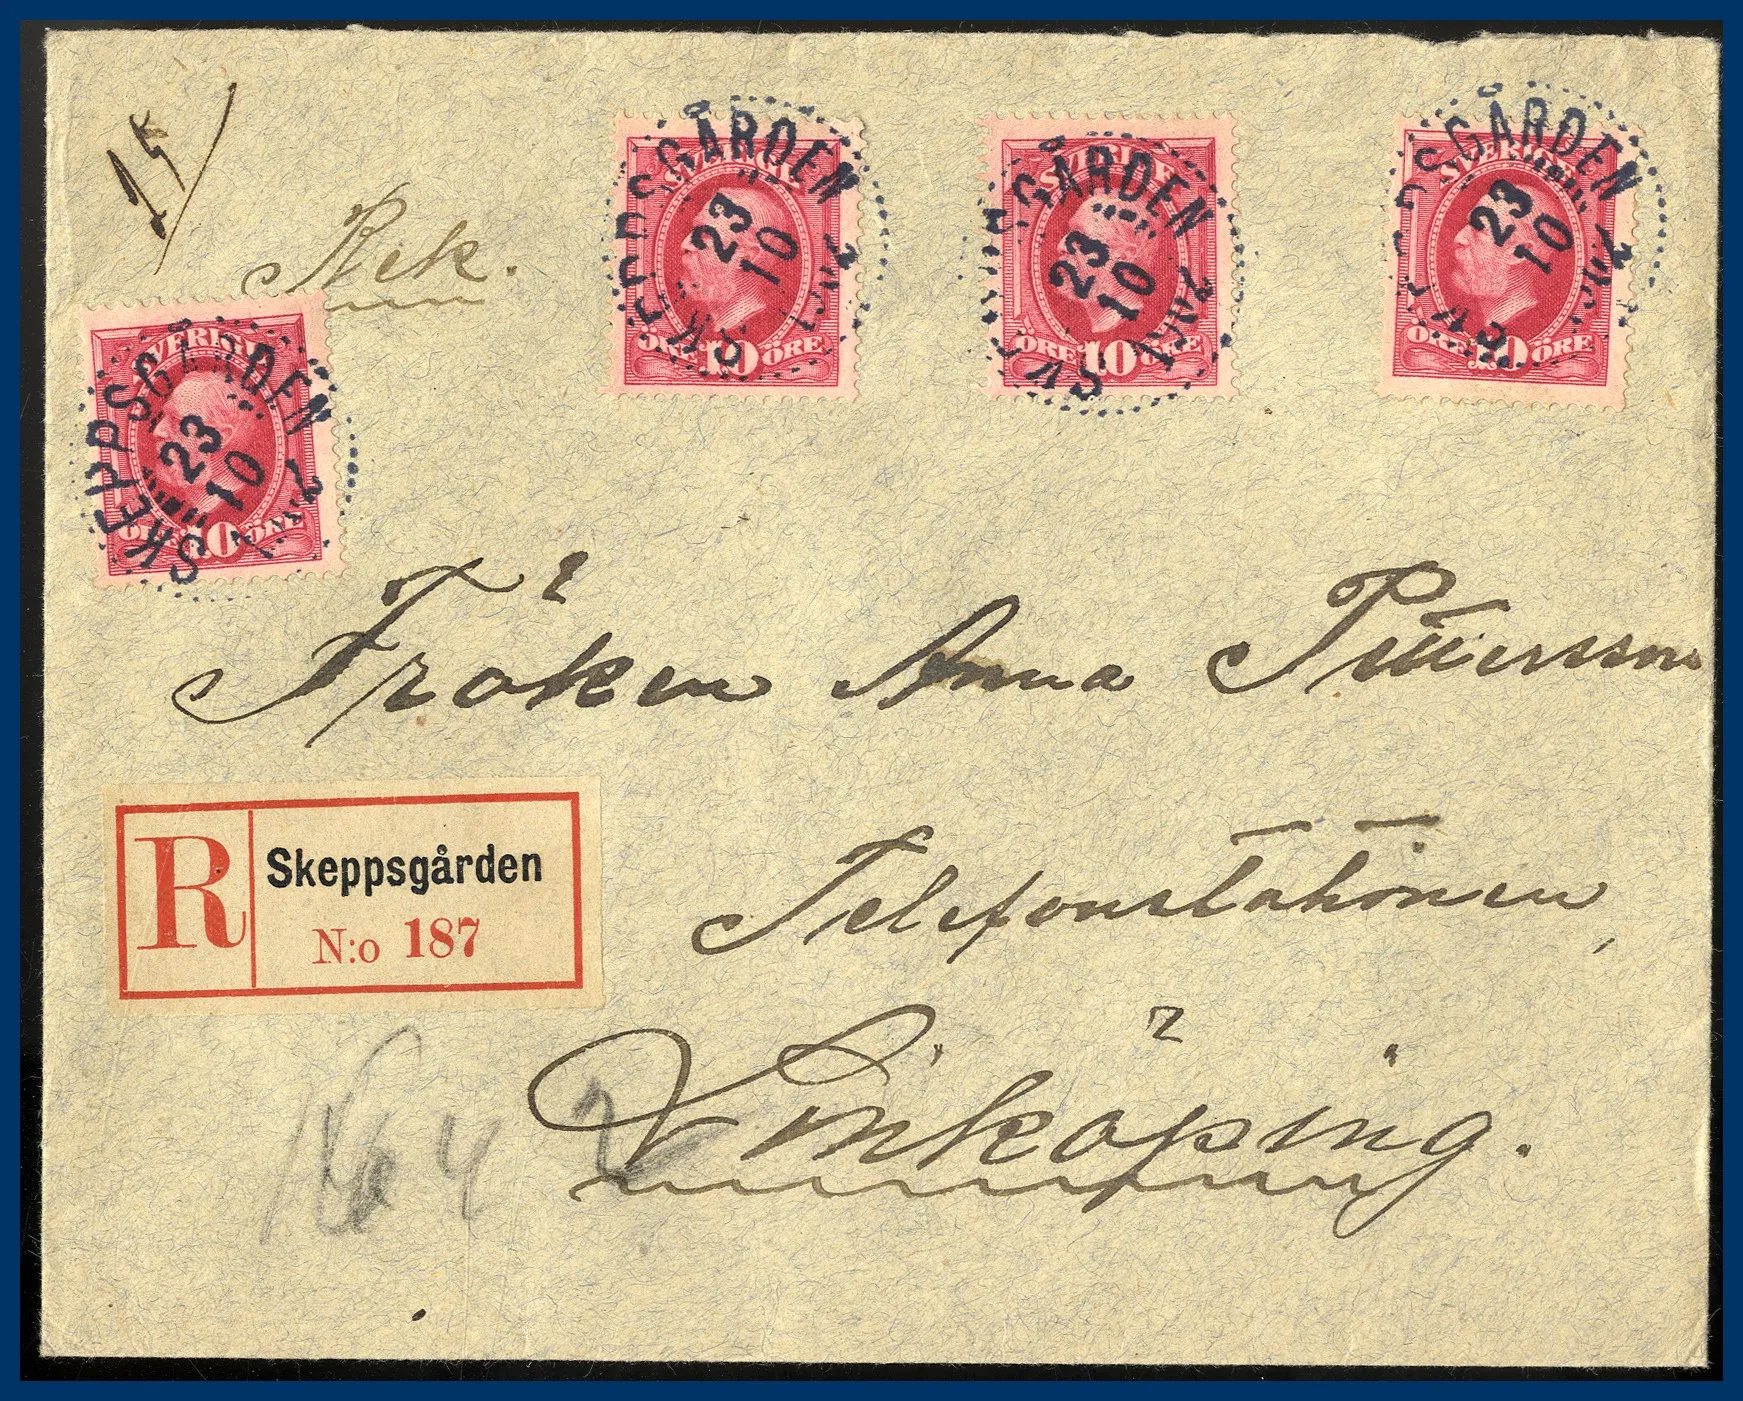 15
Rek.
SKEPPSGÅRDEN
23
10
SVERIGE
ÖRE 10 ÖRE
SKEPPSGÅRDEN
23
10
SVERIGE
ÖRE 10 ÖRE
SKEPPSGÅRDEN
23
10
SVERIGE
ÖRE 10 ÖRE
SKEPPSGÅRDEN
23
10
SVERIGE
ÖRE 10 ÖRE
Fröken Anna Pettersson
R Skeppsgården
N:o 187
Telefonstationen,
Linköping.